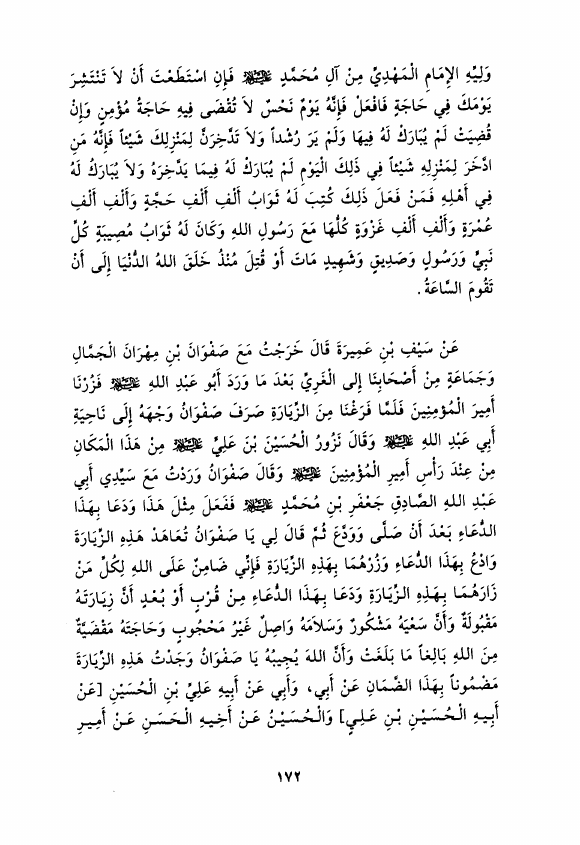 وَلِيِّهِ الإِمَامِ الْمَهْدِيِّ مِنْ آلِ مُحَمَّدٍ عليه السلام فَإِنِ اسْتَطَعْتَ أَنْ لاَ تَنْتَشِرَ
يَوْمَكَ فِي حَاجَةٍ فَافْعَلْ فَإِنَّهُ يَوْمٌ نَحْسٌ لاَ تُقْضَى فِيهِ حَاجَةُ مُؤْمِنٍ وَإِنْ
قُضِيَتْ لَمْ يُبَارَكْ لَهُ فِيهَا وَلَمْ يَرَ رُشْداً وَلاَ تَدَّخِرَنَّ لِمَنْزِلِكَ شَيْئاً فَإِنَّهُ مَنِ
ادَّخَرَ لِمَنْزِلِهِ شَيْئاً فِي ذَلِكَ الْيَوْمِ لَمْ يُبَارَكْ لَهُ فِيمَا يَدَّخِرُهُ وَلاَ يُبَارَكُ لَهُ
فِي أَهْلِهِ فَمَنْ فَعَلَ ذَلِكَ كُتِبَ لَهُ ثَوَابُ أَلْفِ أَلْفِ حَجَّةٍ وَأَلْفِ أَلْفِ
عُمْرَةٍ وَأَلْفِ أَلْفِ غَزْوَةٍ كُلُّهَا مَعَ رَسُولِ اللهِ وَكَانَ لَهُ ثَوَابُ مُصِيبَةِ كُلِّ
نَبِيٍّ وَرَسُولٍ وَصَدِيقٍ وَشَهِيدٍ مَاتَ أَوْ قُتِلَ مُنْذُ خَلَقَ اللهُ الدُّنْيَا إِلَى أَنْ
تَقُومَ السَّاعَةُ.
عَنْ سَيْفِ بْنِ عَمِيرَةَ قَالَ خَرَجْتُ مَعَ صَفْوَانَ بْنِ مِهْرَانَ الْجَمَّالِ
وَجَمَاعَةٍ مِنْ أَصْحَابِنَا إِلَى الْغَرِيِّ بَعْدَ مَا وَرَدَ أَبُو عَبْدِ اللهِ عليه السلام فَزُرْنَا
أَمِيرَ الْمُؤْمِنِينَ فَلَمَّا فَرَغْنَا مِنَ الزِّيَارَةِ صَرَفَ صَفْوَانُ وَجْهَهُ إِلَى نَاحِيَةِ
أَبِي عَبْدِ اللهِ عليه السلام وَقَالَ نَزُورُ الْحُسَيْنَ بْنَ عَلِيٍّ عليه السلام مِنْ هَذَا الْمَكَانِ
مِنْ عِنْدَ رَأْسِ أَمِيرِ الْمُؤْمِنِينَ عليه السلام وَقَالَ صَفْوَانُ وَرَدْتُ مَعَ سَيِّدِي أَبِي
عَبْدِ اللهِ الصَّادِقِ جَعْفَرِ بْنِ مُحَمَّدٍ عليه السلام فَفَعَلَ مِثْلَ هَذَا وَدَعَا بِهَذَا
الدُّعَاءِ بَعْدَ أَنْ صَلَّى وَوَدَّعَ ثُمَّ قَالَ لِي يَا صَفْوَانُ تُعَاهَدْ هَذِهِ الزِّيَارَةَ
وَادْعُ بِهَذَا الدُّعَاءِ وَزُرْهُمَا بِهَذِهِ الزِّيَارَةِ فَإِنِّي ضَامِنٌ عَلَى اللهِ لِكُلِّ مَنْ
زَارَهُمَا بِهَذِهِ الزِّيَارَةِ وَدَعَا بِهَذَا الدُّعَاءِ مِنْ قُرْبٍ أَوْ بُعْدٍ أَنَّ زِيَارَتَهُ
مَقْبُولَةٌ وَأَنَّ سَعْيَهُ مَشْكُورٌ وَسَلاَمَهُ وَاصِلٌ غَيْرُ مَحْجُوبٍ وَحَاجَتَهُ مَقْضِيَّةٌ
مِنَ اللهِ بَالِغاً مَا بَلَغَتْ وَأَنَّ اللهَ يُجِيبُهُ يَا صَفْوَانُ وَجَدْتُ هَذِهِ الزِّيَارَةَ
مَضْمُوناً بِهَذَا الضَّمَانِ عَنْ أَبِي، وَأَبِي عَنْ أَبِيهِ عَلِيِّ بْنِ الْحُسَيْنِ [عَنْ
أَبِيهِ الْحُسَيْنِ بْنِ عَلِيٍ] وَالْحُسَيْنُ عَنْ أَخِيهِ الْحَسَنِ عَنْ أَمِيرِ
١٧٢